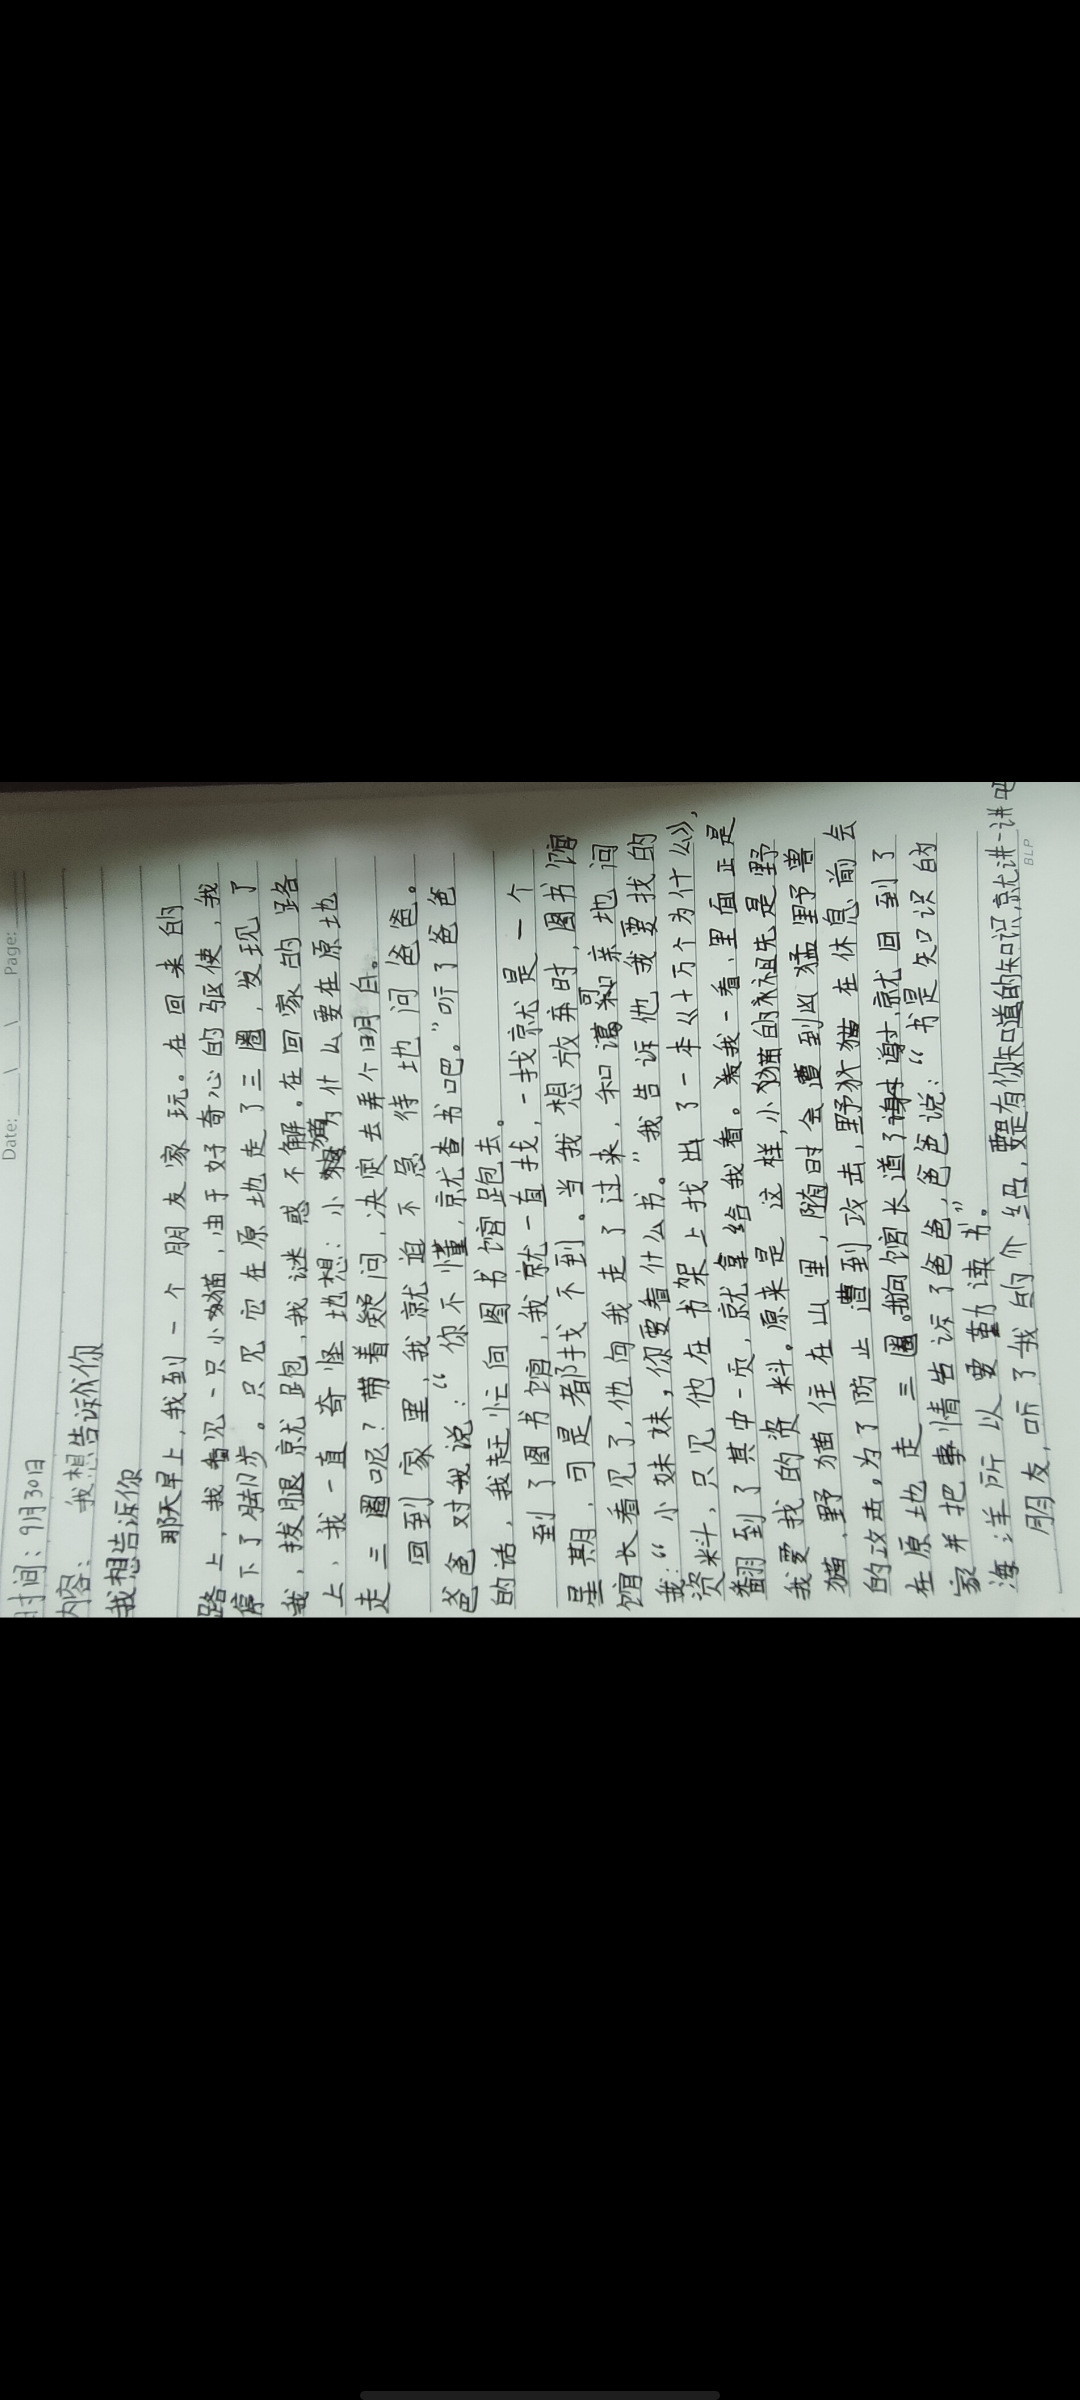 Date: \ \ Page:
时间:9月30日
内容: 我想告诉你
我想告诉你
那天早上,我到一个朋友家玩。在回来的
路上,我看见一只小猫,由于好奇心的驱使,我
停下了脚步。只见它在原地走了三圈,发现了
我,拔腿就跑,我迷惑不解。在回家的路
上,我一直奇怪地想:小猫为什么要在原地
走三圈呢?带着疑问,决定去弄个明白。
回到家里,我就迫不急待地问爸爸。
爸爸对我说:“你不懂,就查书吧。”听了爸爸
的话,我赶忙向图书馆跑去。
到了图书馆,我就一直找,一找就是一个
星期,可是都找不到。当我想放弃时,图书馆
馆长看见了,他向我走了过来,和蔼可亲地问
我:“小妹妹,你要看什么书。”我告诉他我要找的
资料,只见他在书架上找出了一本《十万个为什么》,
翻到了其中一页,就拿给我看。我一看,里面正是
我要找的资料。原来是这样,小猫的祖先是野
猫,野猫住在山里,随时会遭到凶猛野兽
的攻击。为了防止遭到攻击,野猫在休息前会
在原地走三圈。我向馆长道了谢,就回到了
家并把事情告诉了爸爸,爸爸说:“书是知识的
海洋所以要勤读书。”
朋友,听了我的介绍,要是有你知道的知识,就讲一讲吧
BLP